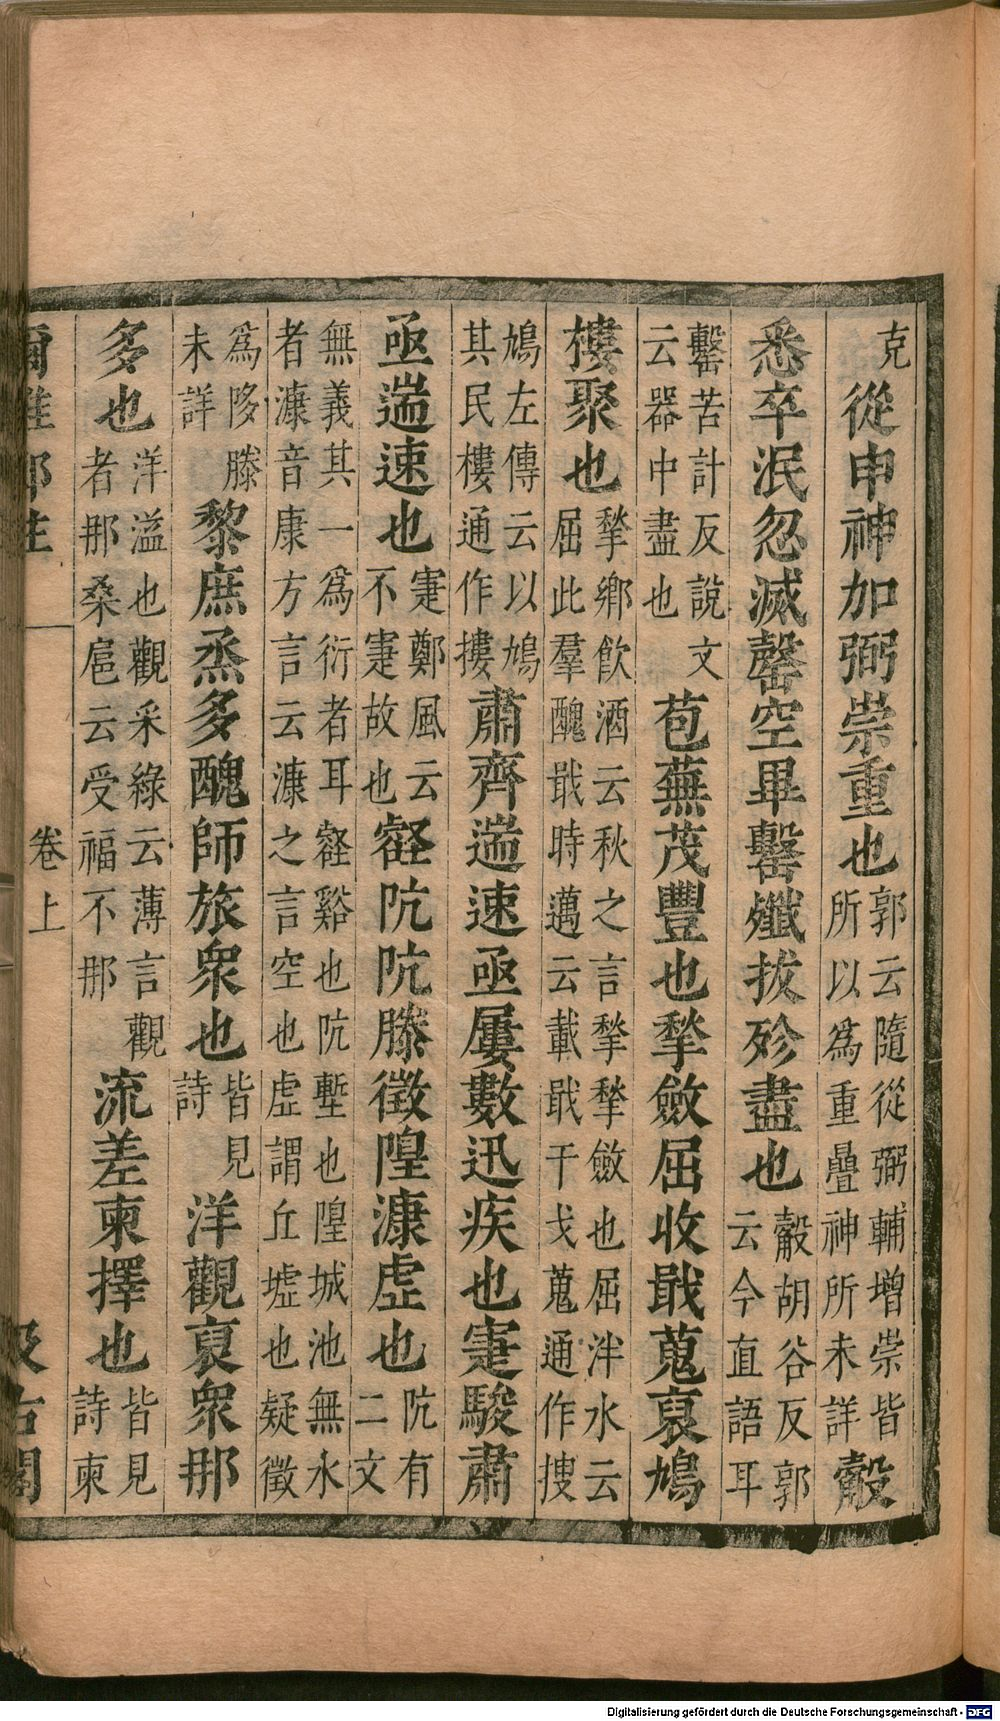 克從申神加弼崇重也郭云隨從弼輔增崇皆所以為重疊神所未詳觳
悉卒泯忽滅罄空畢罊殲拔殄盡也觳胡谷反郭云今直語耳
罊苦計反說文云器中盡也苞蕪茂豐也揫斂屈收戢蒐裒鳩
樓聚也揫鄉飲酒云秋之言揫揫斂也屈泮水云屈此羣醜戢時邁云載戢干戈蒐通作搜
鳩左傳云以鳩其民樓通作摟肅齊遄速亟屢數迅疾也寁駿肅
亟遄速也寁鄭風云不寁故也壑阬阬滕徵隍漮虛也阬有二文
無義其一為衍者耳壑谿也阬塹也隍城池無水者漮音康方言云漮之言空也虛謂丘墟也疑徵
為哆滕未詳黎庶烝多醜師旅衆也皆見詩洋觀裒衆那
多也洋溢也觀采綠云薄言觀者那桑扈云受福不那流差柬擇也皆見詩柬
爾雅鄭注 卷上 汲古閣
Digitalisierung gefördert durch die Deutsche Forschungsgemeinschaft - DFG